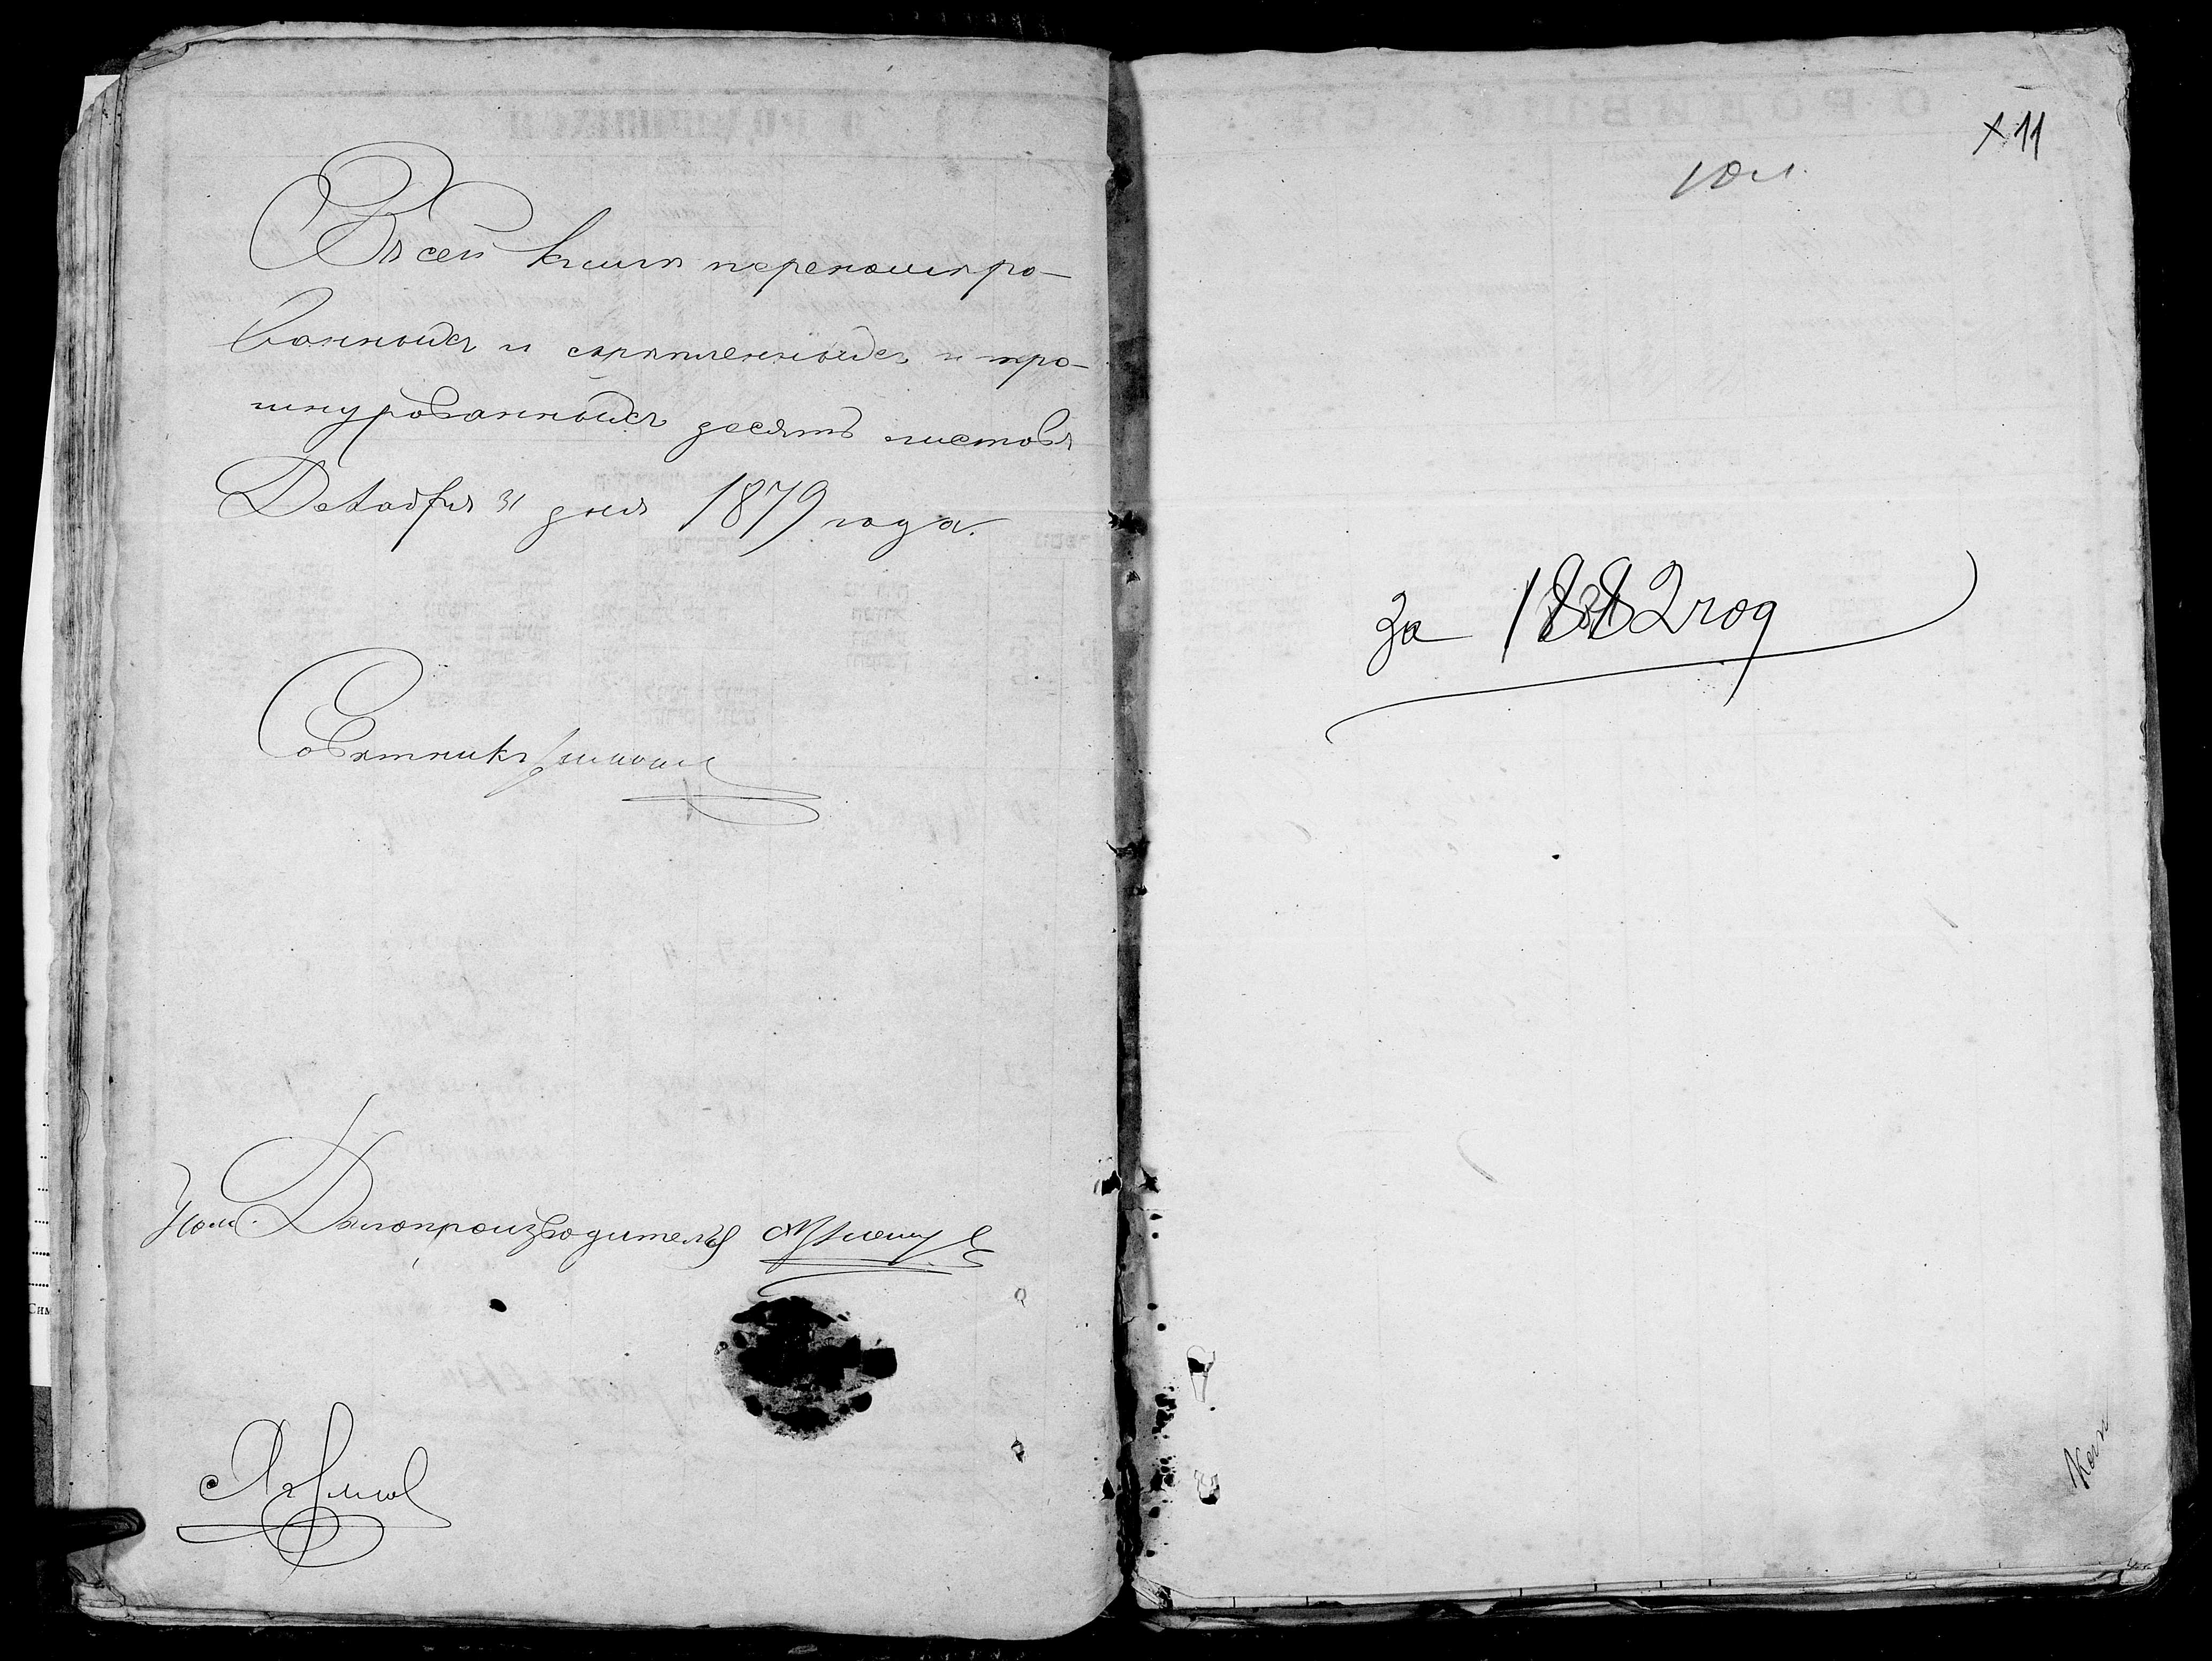 Въ сей книгѣ перенумѣро-
ванныхъ и скрѣпленныхъ и про-
шнурованныхъ десять листовъ
Декабря 31 дня 1879 года.
Совѣтникъ
Дѣлопроизводитель
11
10 л.
за 1882 год